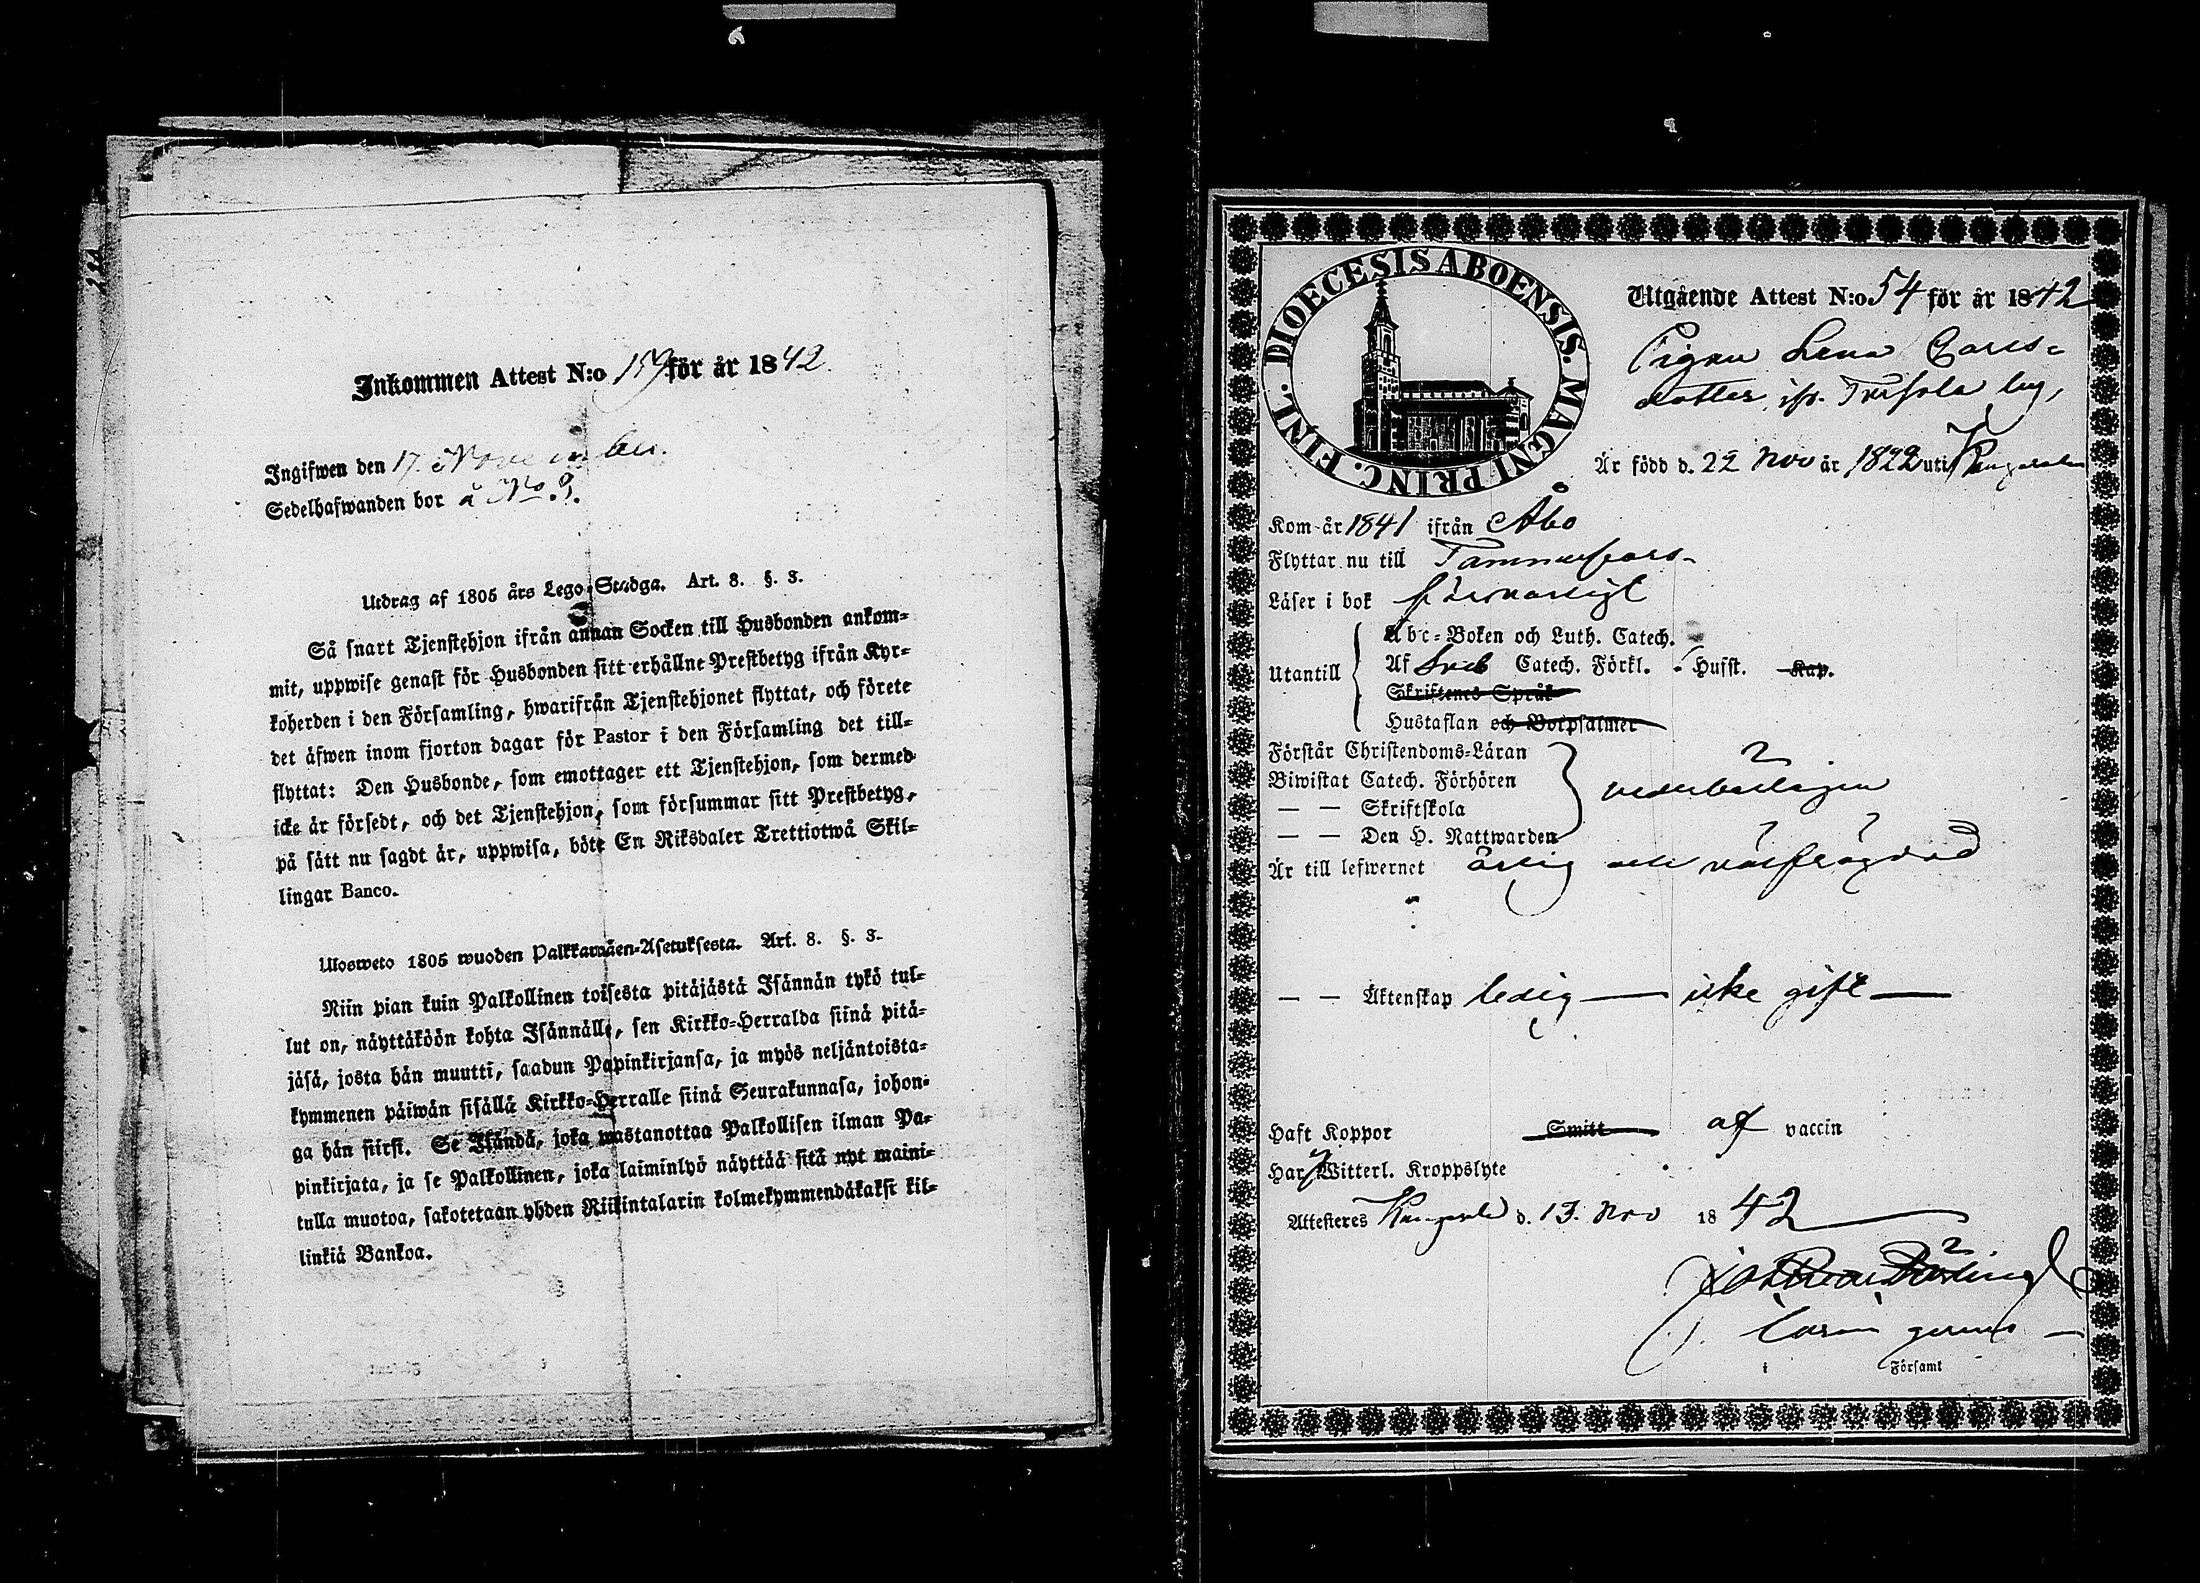 Inkommen Attest N:o 159 för år 1842.
Ingifwen den 17. November.
Sedelhafwanden bor å No 9.
Utdrag af 1805 års Lego-Stadga. Art. 8. §. 3.
Så snart Tjenstehjon ifrån annan Socken till Husbonden ankom-
mit, uppwise genast för Husbonden sitt erhållne Prestbetyg ifrån Kyr-
koherden i den Församling, hwarifrån Tjenstehjonet flyttat, och förete
det äfwen inom fjorton dagar för Pastor i den Församling det till-
flyttat: Den Husbonde, som emottager ett Tjenstehjon, som dermed
icke är försedt, och det Tjenstehjon, som försummar sitt Prestbetyg,
på sätt nu sagdt är, uppwisa, böte En Riksdaler Trettiotwå Skil-
lingar Banco.
Ulosweto 1805 wuoden Palkkawäen-Asetuksesta. Art. 8. §. 3.
Niin pian kuin Palkollinen toisesta pitäjästä Isännän tykö tul-
lut on, näyttäköön kohta Isännälle, sen Kirkko-Herralda siinä pitä-
jäsä, josta hän muutti, saadun Papinkirjansa, ja myös neljäntoista-
kymmenen päiwän sisällä Kirkko-Herralle siinä Seurakunnasa, johon-
ga hän siirsi. Se Isändä, joka wastanottaa Palkollisen ilman Pa-
pinkirjata, ja se Palkollinen, joka laiminlyö näyttää sitä nyt maini-
tulla muotoa, sakotetaan yhden Riikintalarin kolmekymmendäkaksi kil-
linkiä Bankoa.
DIOECESIS ABOENSIS. MAGNI PRINC. FINL.
Utgående Attest N:o 54 för år 1842
Pigan Lena Carls-
dotter, ifr. by,
Är född d. 22 Nov år 1822 uti Kangasala
Kom år 1841 ifrån Åbo
Flyttar nu till Tammerfors-
Läser i bok försvarligt
Utantill
Abc-Boken och Luth. Catech.
Af Sveb Catech. Förkl. Husst. Kap.
Skriftenes Språk
Hustaflan och Botpsalmer
Förstår Christendoms-Läran
Biwistat Catech. Förhören
— — Skriftskola
— — Den H. Nattwarden
vederbörligen
Är till lefwernet ärlig och välfrägdad
— — Äktenskap ledig — icke gift —
Haft Koppor Smitt af vaccin
Har Witterl. Kroppslyte
Attesteres Kangasala d. 13. Nov 1842
i Församl